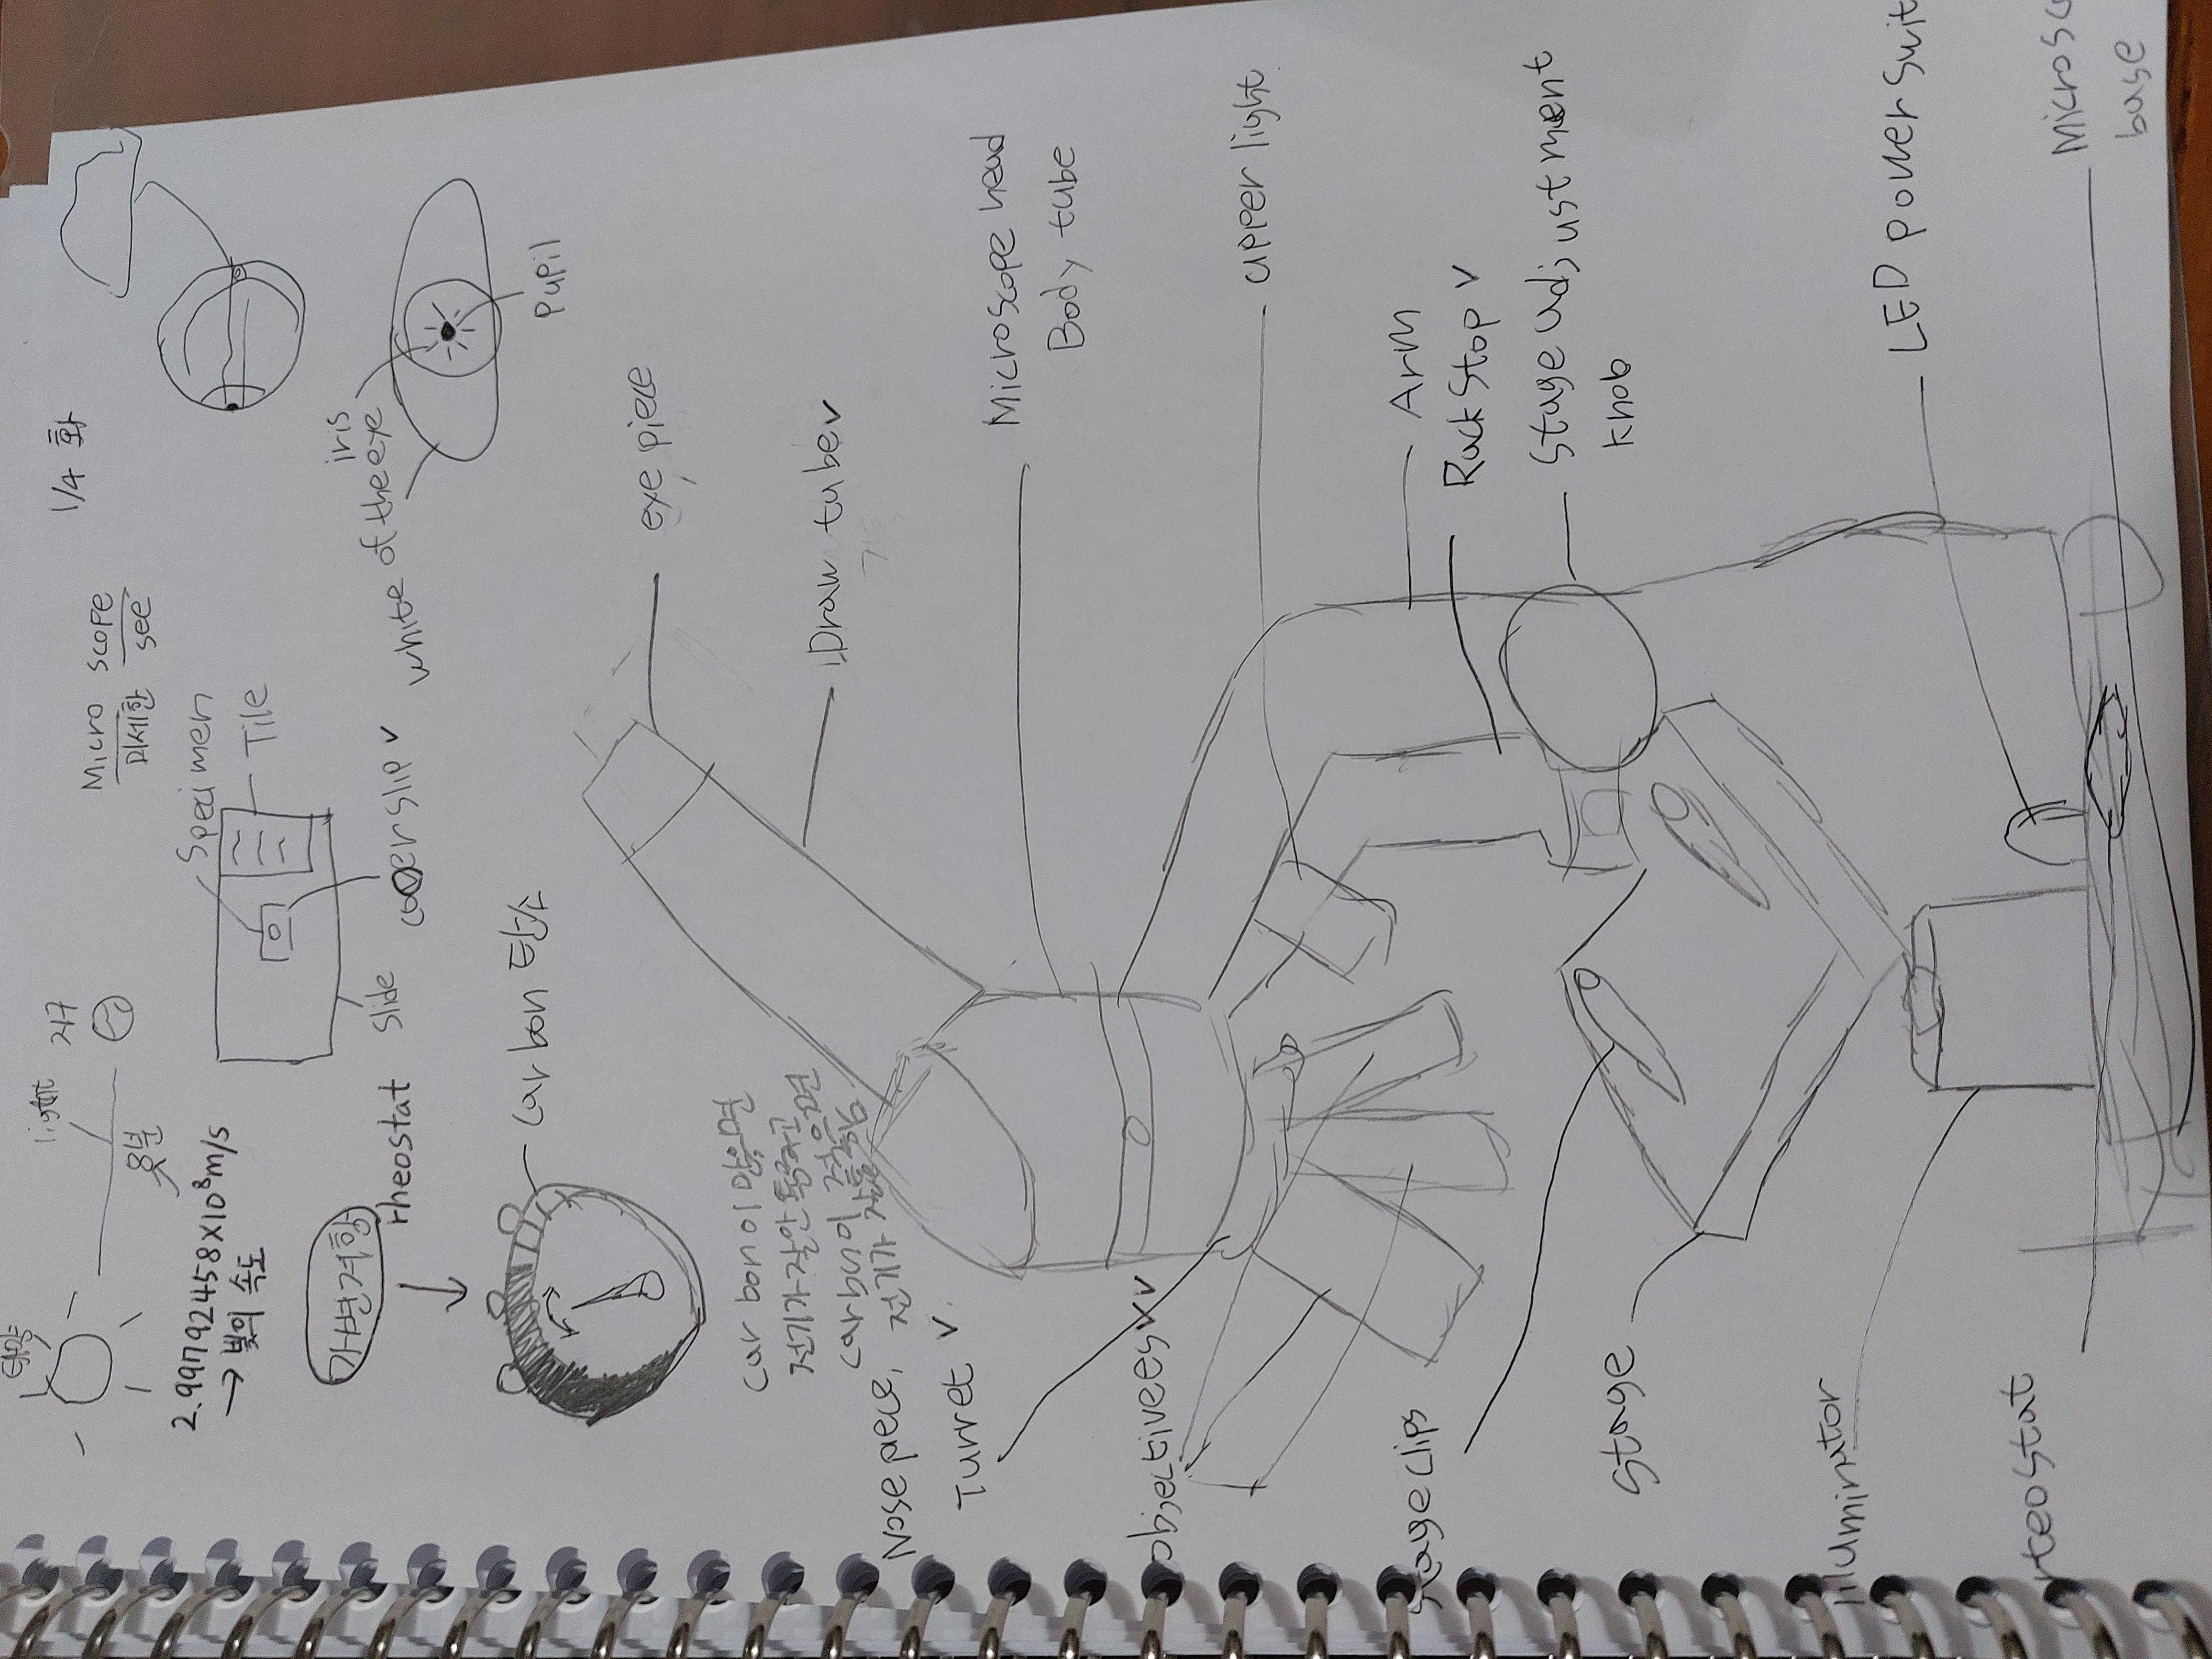 태양
light
지구
윗분
2.99792458×10⁸m/s
→ 빛의 속도
Micro scope
미세한 see
1/4 화
Specimen
Tile
Slide
coverslip v
iris
white of the eye
Pupil
가변저항
rheostat
carbon 탄소
carbon이 많으면
전기가 잘 안 통하고
carbon이 적으면
전기가 잘 통함
eye piece
Draw tube v
Microscope head
Body tube
upper light
Arm
Rack Stop v
Stage adjustment
knob
LED power Swit
Microsc
base
Nose piece,
Turret v
objectivees vv
Stage clips
Stage
illuminator
rteostat